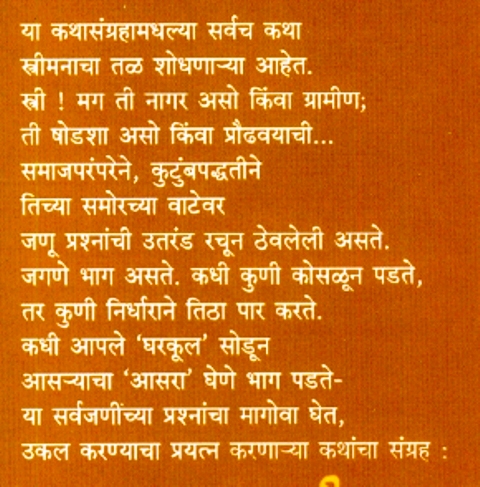 या कथासंग्रहामधल्या सर्वच कथा
स्त्रीमनाचा तळ शोधणाऱ्या आहेत.
स्त्री ! मग ती नागर असो किंवा ग्रामीण;
ती षोडशा असो किंवा प्रौढवयाची...
समाजपरंपरेने, कुटुंबपद्धतीने
तिच्या समोरच्या वाटेवर
जणू प्रश्नांची उतरंड रचून ठेवलेली असते.
जगणे भाग असते. कधी कुणी कोसळून पडते,
तर कुणी निर्धाराने तिठा पार करते.
कधी आपले ‘घरकूल’ सोडून
आसऱ्याचा ‘आसरा’ घेणे भाग पडते-
या सर्वजणींच्या प्रश्नांचा मागोवा घेत,
उकल करण्याचा प्रयत्न करणाऱ्या कथांचा संग्रह :